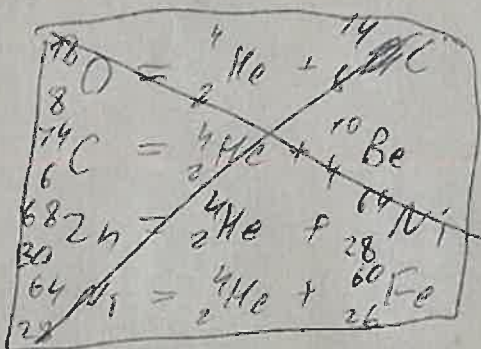 ¹⁸₈O = ⁴₂He + ¹⁴₆C
¹⁴₆C = ⁴₂He + ¹⁰₄Be
⁶⁸₃₀Zn = ⁴₂He + ⁶⁴₂₈Ni
⁶⁴₂₈Ni = ⁴₂He + ⁶⁰₂₆Fe